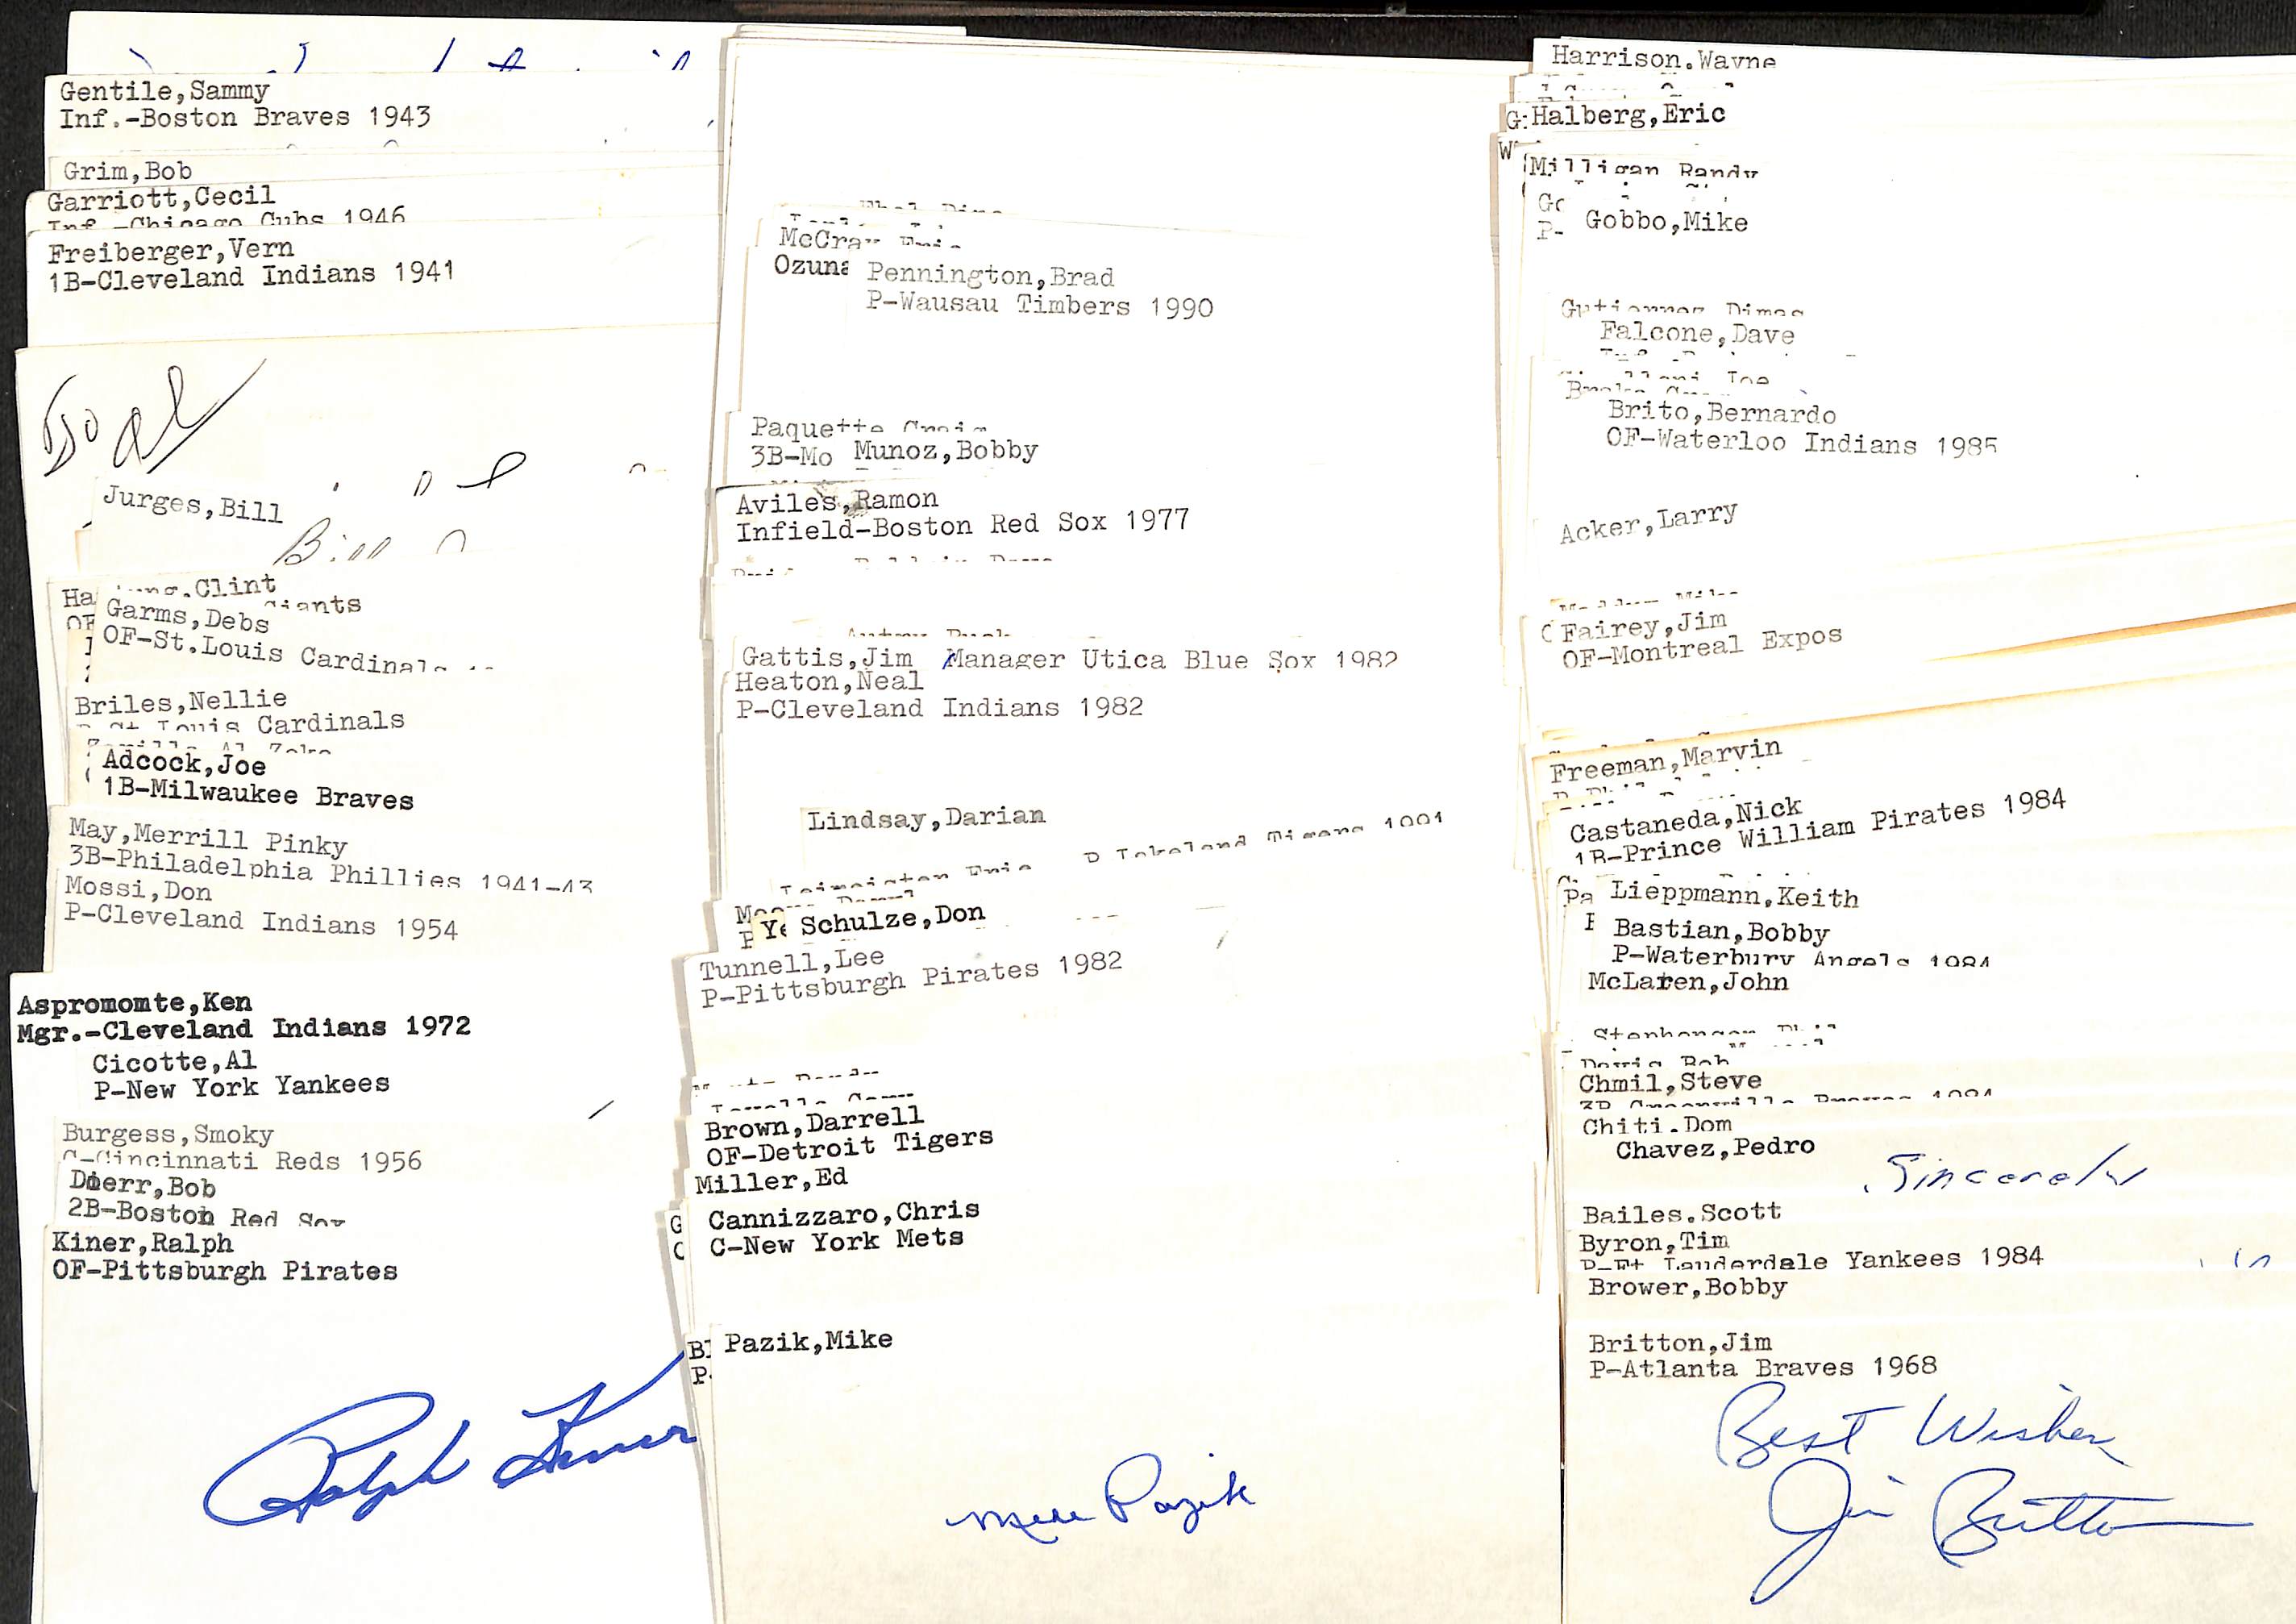 Gentile,Sammy
Inf.-Boston Braves 1943
Grim,Bob
Garriott,Cecil
Inf.-Chicago Cubs 1946
Freiberger,Vern
1B-Cleveland Indians 1941
Jurges,Bill
Ha
Clint
OF
Giants
Garms,Debs
OF-St.Louis Cardinals
Briles,Nellie
St Louis Cardinals
Adcock,Joe
1B-Milwaukee Braves
May,Merrill Pinky
3B-Philadelphia Phillies 1941-43
Mossi,Don
P-Cleveland Indians 1954
Aspromomte,Ken
Mgr.-Cleveland Indians 1972
Cicotte,Al
P-New York Yankees
Burgess,Smoky
C-Cincinnati Reds 1956
Doerr,Bob
2B-Boston Red Sox
Kiner,Ralph
OF-Pittsburgh Pirates
Ralph Kiner
McCray
Ozuna
Pennington,Brad
P-Wausau Timbers 1990
Paquette Craig
3B-Mo
Munoz,Bobby
Aviles,Ramon
Infield-Boston Red Sox 1977
Gattis,Jim Manager Utica Blue Sox 1982
Heaton,Neal
P-Cleveland Indians 1982
Lindsay,Darian
P Lakeland Tigers 1991
Ye
Schulze,Don
Tunnell,Lee
P-Pittsburgh Pirates 1982
Brown,Darrell
OF-Detroit Tigers
Miller,Ed
G
Cannizzaro,Chris
C
C-New York Mets
Pazik,Mike
P
Mike Pazik
Harrison.Wayne
G
Halberg,Eric
W
Milligan Randy
Go
Gobbo,Mike
P-
Gutierrez Dimas
Falcone,Dave
Brito,Bernardo
OF-Waterloo Indians 1985
Acker,Larry
Fairey,Jim
OF-Montreal Expos
Freeman,Marvin
Castaneda,Nick
1B-Prince William Pirates 1984
Pa
Lieppmann,Keith
Bastian,Bobby
P-Waterbury Angels 1984
McLaren,John
Stephenson Phil
Davis Bob
Chmil,Steve
3B Greenville Braves 1984
Chiti.Dom
Chavez,Pedro
Sincerely
Bailes.Scott
Byron,Tim
P-Ft Lauderdale Yankees 1984
Brower,Bobby
Britton,Jim
P-Atlanta Braves 1968
Best Wishes
Jim Britton